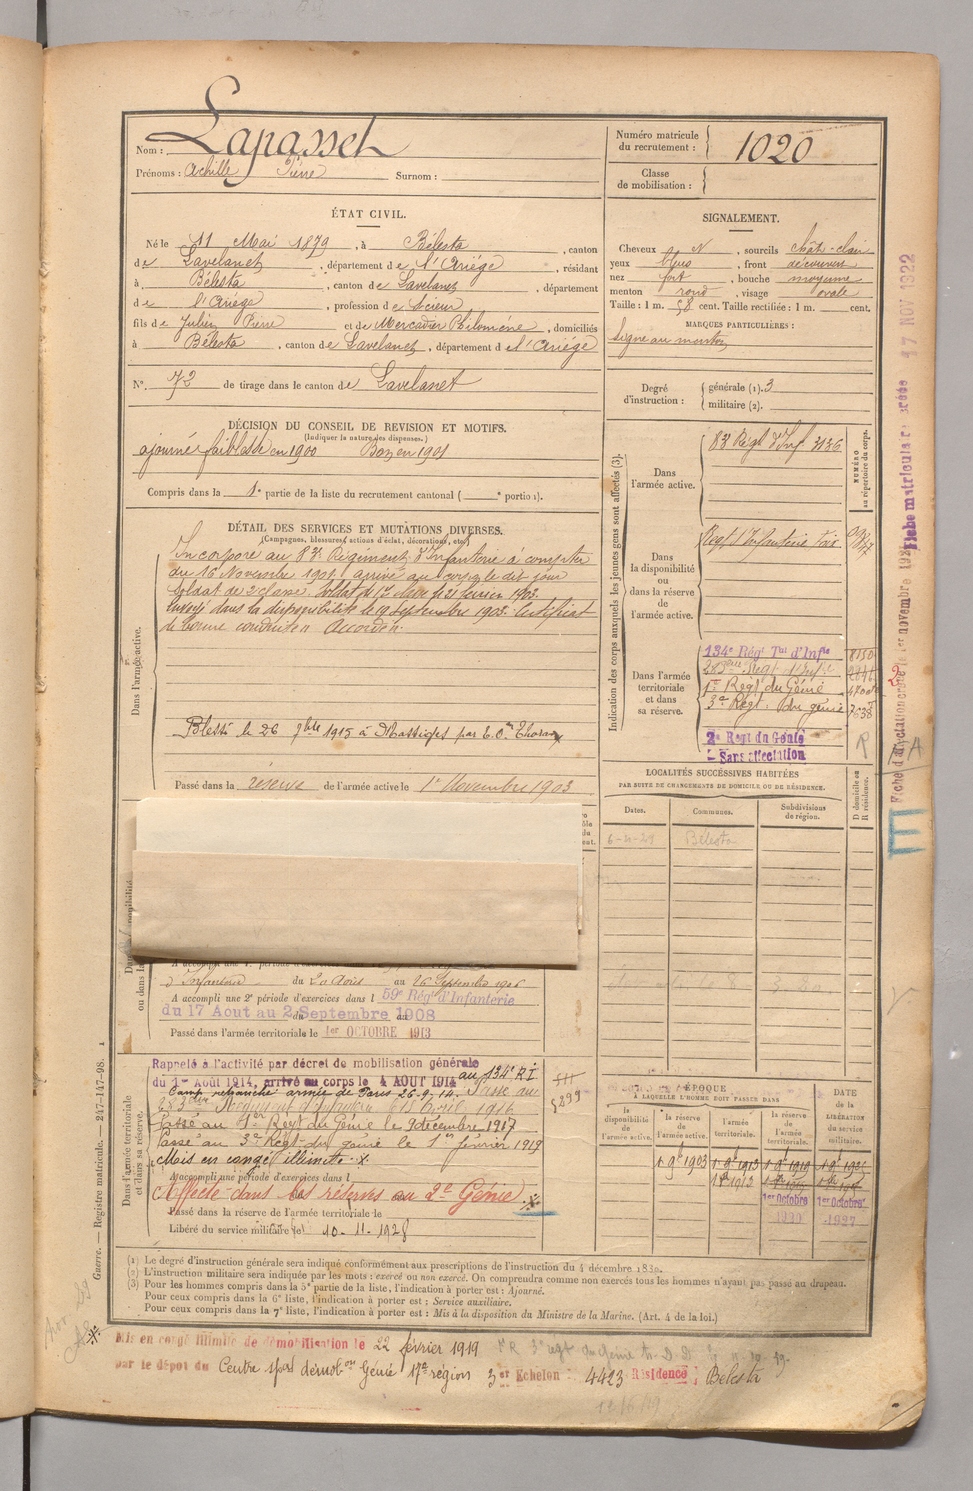 Nom : Lapasset
Prénoms : Achille Pierre Surnom :
Numéro matricule du recrutement : 1020
Classe de mobilisation :
ÉTAT CIVIL.
Né le 11 Mai 1879, à Bélesta, canton
de Lavelanet, département de l'Ariège, résidant
à Bélesta, canton de Lavelanet, département
de l'Ariège, profession de Scieur
fils de Julien Pierre et de Mercadier Philomène, domiciliés
à Bélesta, canton de Lavelanet, département de l'Ariège
N° 72 de tirage dans le canton de Lavelanet
SIGNALEMENT.
Cheveux N, sourcils chât-clair
yeux bleus, front découvert
nez fort, bouche moyenne
menton rond, visage ovale
Taille : 1 m. 58 cent. Taille rectifiée : 1 m. cent.
MARQUES PARTICULIÈRES :
Signe au menton
Degré d'instruction : générale (1). 3
militaire (2).
DÉCISION DU CONSEIL DE REVISION ET MOTIFS.
(Indiquer la nature des dispenses.)
ajourné faiblesse en 1900 Bon en 1901
Compris dans la 1e partie de la liste du recrutement cantonal ( e portion).
DÉTAIL DES SERVICES ET MUTATIONS DIVERSES.
(Campagnes, blessures, actions d'éclat, décorations, etc.)
Dans l'armée active.
Incorporé au 83e Régiment d'Infanterie à compter
du 16 Novembre 1901, arrivé au corps le dit jour
soldat de 2e classe. Soldat de 1re classe le 21 février 1903.
Envoyé dans la disponibilité le 19 septembre 1903. Certificat
de bonne conduite Accordé.
Blessé le 26 9bre 1915 à Massiges par E. O.
Passé dans la réserve de l'armée active le 1er Novembre 1903
Indication des corps auxquels les jeunes gens sont affectés (3).
NUMÉRO au répertoire du corps.
Dans l'armée active.
83 Régt d'Inf 3136
Dans la disponibilité ou dans la réserve de l'armée active.
Regt d'Infanterie
Dans l'armée territoriale et dans sa réserve.
134e Régt Tal d'Infie
283ème Regt d'Infie
1er Régt du Génie
3e Régt du génie
2e Regt du Génie
Sans affectation
LOCALITÉS SUCCESSIVES HABITÉES
PAR SUITE DE CHANGEMENTS DE DOMICILE OU DE RÉSIDENCE.
Dates. Communes. Subdivisions de région. D domicile ou R résidence.
Bélesta
d'Infanterie du 20 Août au 16 Septembre 1906
A accompli une 2e période d'exercices dans l 59e Régt d'Infanterie
du 17 Aout au 2 Septembre 1908
Passé dans l'armée territoriale le 1er OCTOBRE 1913
Dans l'armée territoriale et dans sa réserve.
Rappelé à l'activité par décret de mobilisation générale
du 1er Août 1914, arrivé au corps le 4 AOUT 1914 au 134e R I
Camp retranché armée de Paris 26-9-14. Passé au
283ème Régiment d'infanterie le 18 Avril 1916
Passé au 1er Régt du Génie le 9 décembre 1917
Passé au 3e Régt du génie le 1er février 1919
Mis en congé illimité
A accompli une période d'exercices dans l
Affecté dans les réserves au 2e Génie
Passé dans la réserve de l'armée territoriale le
Libéré du service militaire le 10-11-1928
ÉPOQUE
À LAQUELLE L'HOMME DOIT PASSER DANS
la disponibilité de l'armée active.
la réserve de l'armée active.
l'armée territoriale.
la réserve de l'armée territoriale.
DATE de la LIBÉRATION du service militaire.
1er Octobre
1er Octobre
1927
(1) Le degré d'instruction générale sera indiqué conformément aux prescriptions de l'instruction du 4 décembre 1889.
(2) L'instruction militaire sera indiquée par les mots : exercé ou non exercé. On comprendra comme non exercés tous les hommes n'ayant pas passé au drapeau.
(3) Pour les hommes compris dans la 5e partie de la liste, l'indication à porter est : Ajourné.
Pour ceux compris dans la 6e liste, l'indication à porter est : Service auxiliaire.
Pour ceux compris dans la 7e liste, l'indication à porter est : Mis à la disposition du Ministre de la Marine. (Art. 4 de la loi.)
Mis en congé illimité de démobilisation le 22 février 1919
par le dépôt du Centre spal démobon Génie 17e région 3er Echelon : 4423 Résidence : Bélesta
Guerre. — Registre matricule. — 247-147-98.
17 NOV 1922